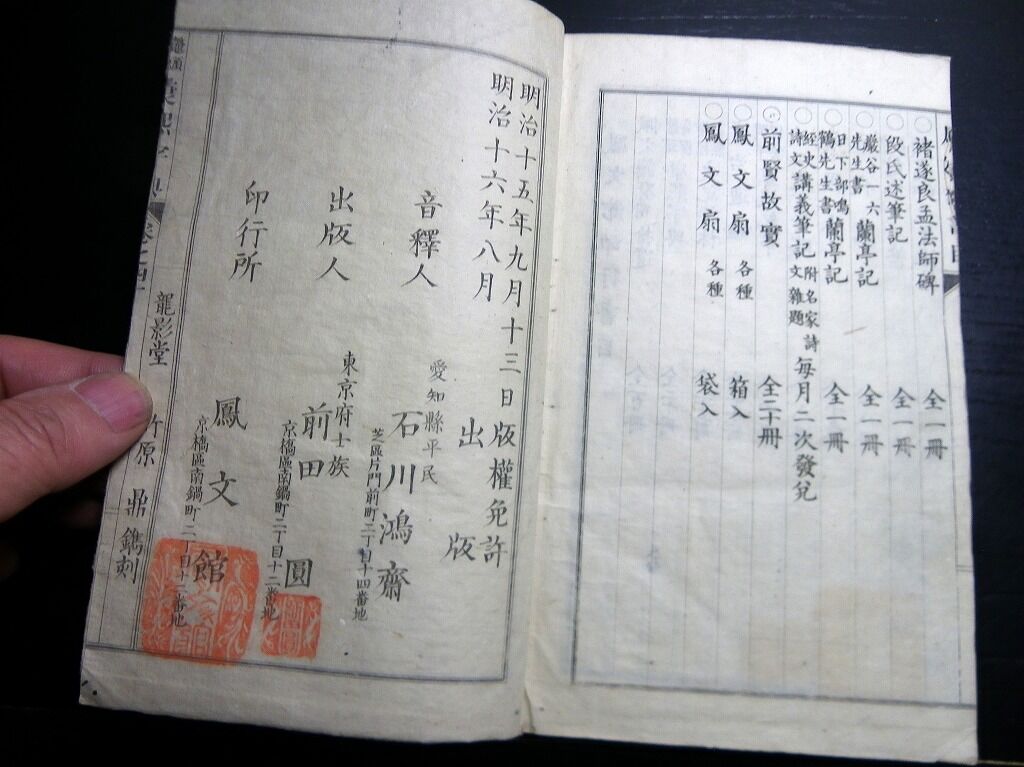 褚遂良孟法師碑 全一冊
段氏述筆記 全一冊
巖谷一六先生書 蘭亭記 全一冊
日下部鳴鶴先生書 蘭亭記 全一冊
經史詩文 講義筆記 附名家詩文雜題 每月二次發兌
前賢故實 全二十冊
鳳文扇 各種 箱入
鳳文扇 各種 袋入
明治十五年九月十三日版權免許
明治十六年八月 出版
音釋人 愛知縣平民 石川鴻齋
芝區片門前町二丁目十四番地
出版人 東京府士族 前田圓
京橋區南鍋町二丁目十二番地
印行所 鳳文館
京橋區南鍋町二丁目十二番地
龍影堂 竹原鼎鐫刻